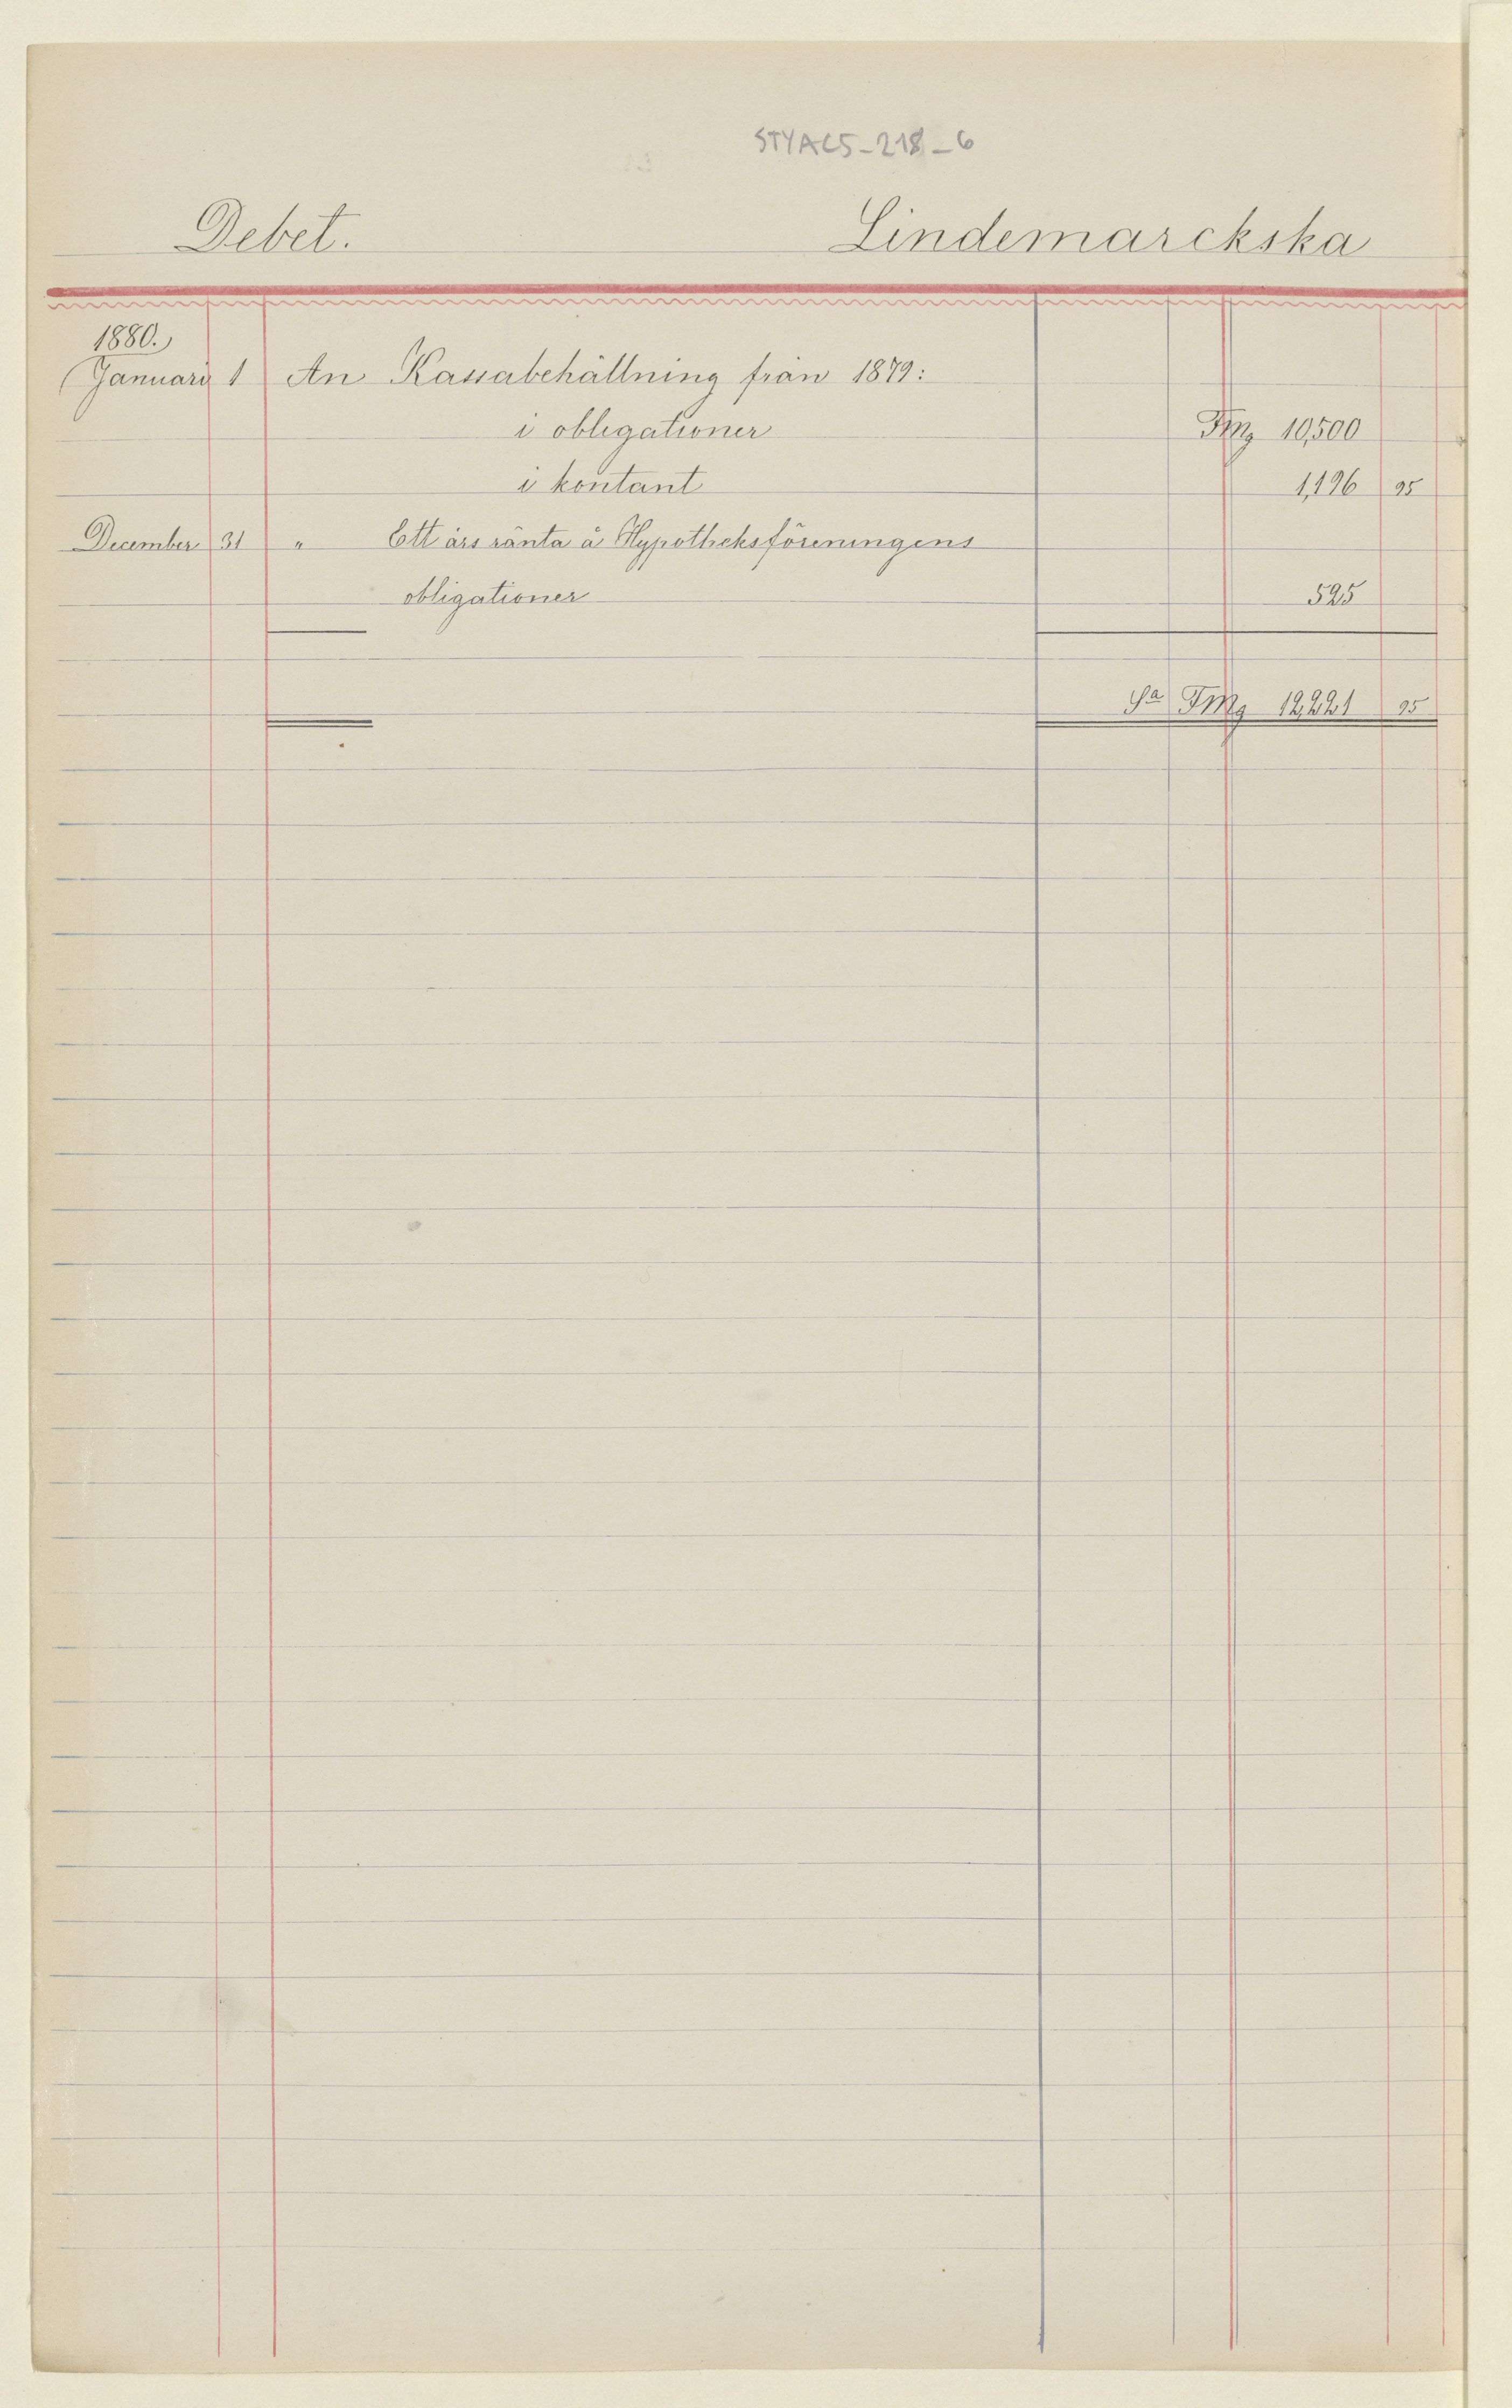 STYACS-218-6
Debet. Lindemarckska
1880.
Januari 1 An Kassabehållning från 1879:
i obligationer Fmg 10,500
i kontant 1,196 95
December 31 " Ett års ränta å Hypotheksföreningens
obligationer 525
Sa FMg 12,221 95